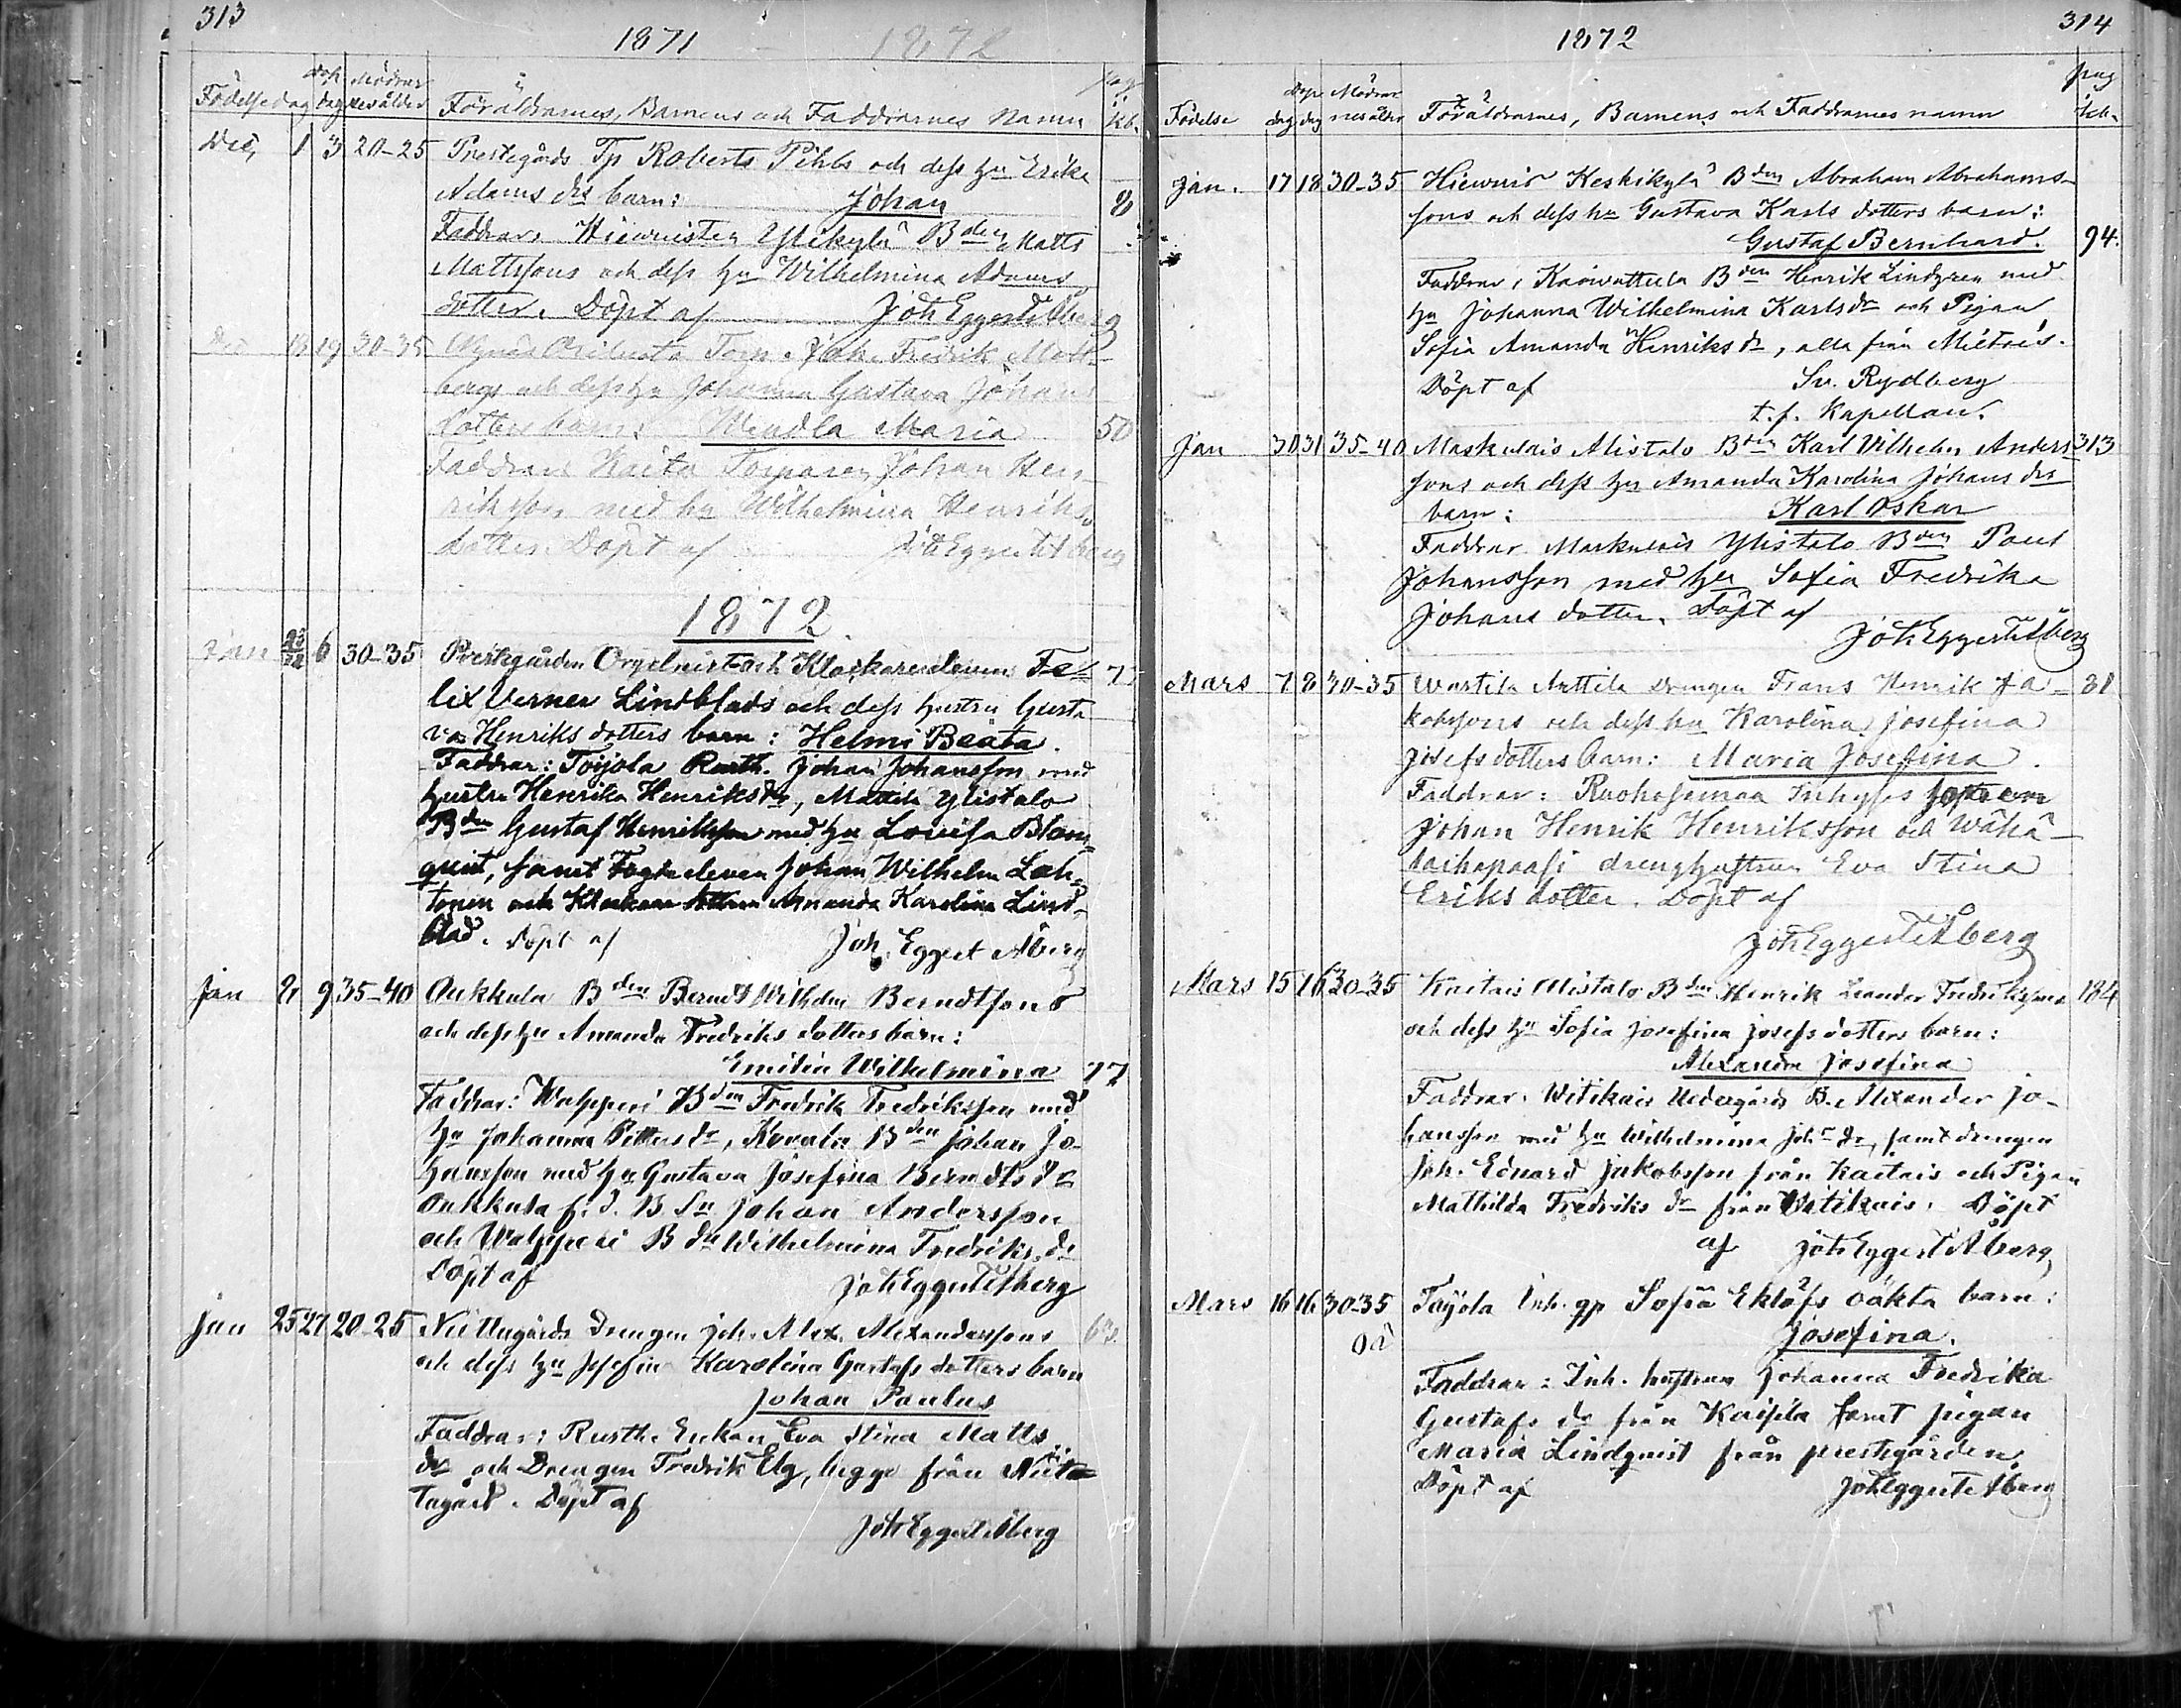 313
1871 1872
Födelsedag Dop dag Mödrar nes ålder Föräldrarnes, Barnens och Faddrarnes Namn pag i kb.
Dec, 1 3 20-25 Prestegårds Tp Roberts Pihls och dess hu Erika
Adams drs barn: Johan 8
Faddrar, Hiewoisten Ylikylä Bden Matts
Mattssons och dess hu Wilhelmina Adams
dotter. Döpt af Joh Eggert Åberg
Dec 18 19 30-35 Torp. Joh. Fredrik
bergs och dess hu Johanna Gustava Johans
dotters barn: Wendla Maria 50
Faddrar Kaita Torparen Johan Hen-
riksson med hu Wilhelmina Henriks
dotter. Döpt af Joh Eggert Åberg
1872
Jan 6 30-35 Prestgården Orgelnist och Klockareeleven Fe- 7
lix Verner Lindblads och dess hustru Gusta
va Henriks dotters barn: Helmi Beata.
Faddrar: Toijola Rusth. Johan Johansson med
hustru Henrika Henriksdr, Mattila Ylistalo
Bden Gustaf Henriksson med hu Lovisa Blom-
quist, samt Fogdeeleven Johan Wilhelm Lah-
tonen och Amanda Karolina Lind-
blad. Döpt af Joh. Eggert Åberg
Jan 8 9 35-40 Oukkula Bden Berndt Wilhelm Berndtsons
och dess hu Amanda Fredriks dotters barn:
Emilia Wilhelmina 77
Faddrar: Walpperi Bden Fredrik Fredriksson med
hu Johanna Petters dr, Bden Johan Jo-
hansson med hu Gustava Josefina Berndts dr
Oukkula f. d. B Sn Johan Andersson
och Walpperi B dr Wilhelmina Fredriks dr
Döpt af Joh Eggert Åberg
Jan 25 27 20-25 Niittugårds Drengen Joh. Alex. Alexanderssons
och dess hu Josefin Karolina Gustafs dotters barn
Johan Paulus
Faddrar: Rusth. Enkan Eva Stina Matts
dr och Drengen Fredrik Elg, begge från Niit-
tugård. Döpt af
Joh Eggert Åberg
314
1872
Födelse dag Dop dag Mödrar nes ålder Föräldrarnes, Barnens och Faddrarnes namn pag i kb.
Jan. 17 18 30-35 Hiewais Keskikylä Bden Abraham Abrahams-
sons och dess hu Gustava Karls dotters barn:
Gustaf Bernhard. 94.
Faddrar, Bden Henrik Lindgren med
hu Johanna Wilhelmina Karlsdr och Pigan
Sofia Amanda Henriks dr, alla från Mietois.
Döpt af Sv. Rydberg
t. f. Kapellan.
Jan 30 31 35-40 Maskulais Alistalo Bden Karl Vilhelm Anders 313
sons och dess hu Amanda Karolina Johans drs
barn: Karl Oskar
Faddrar Maskulais Ylistalo Bden Paul
Johansson med hu Sofia Fredrika
Johans dotter. Döpt af
Joh Eggert Åberg
Mars 7 8 30-35 Wartila Anttila Drengen Frans Henrik Ja- 31
kobssons och dess hu Karolina Josefina
Josefsdotters barn: Maria Josefina.
Faddrar: Ruohosmaa Inhyses
Johan Henrik Henriksson och Wähä-
laihopaasi drenghustrun Eva Stina
Eriks dotter. Döpt af
Joh Eggert Åberg
Mars 15 16 30-35 Kaitais Alistalo Bden Henrik Leander Fredrikssons 184
och dess hu Sofia Josefina Josefs dotters barn:
Alexandra Josefina
Faddrar, Witikais Nedergårds B. Alexander Jo-
hansson med hu Wilhelmina Johs dr, samt drengen
Joh. Eduard Jakobsson från Kaitais och Pigan
Mathilda Fredriks dr från Witikais. Döpt
af Joh Eggert Åberg
Mars 16 16 30-35 Toijola Inh. qp Sofia Eklöfs oäkta barn:
oä Josefina.
Faddrar: Inh. hustrun Johanna Fredrika
Gustafs dr från Kaisela samt pigan
Maria Lindqvist från prestgården,
Döpt af Joh Eggert Åberg